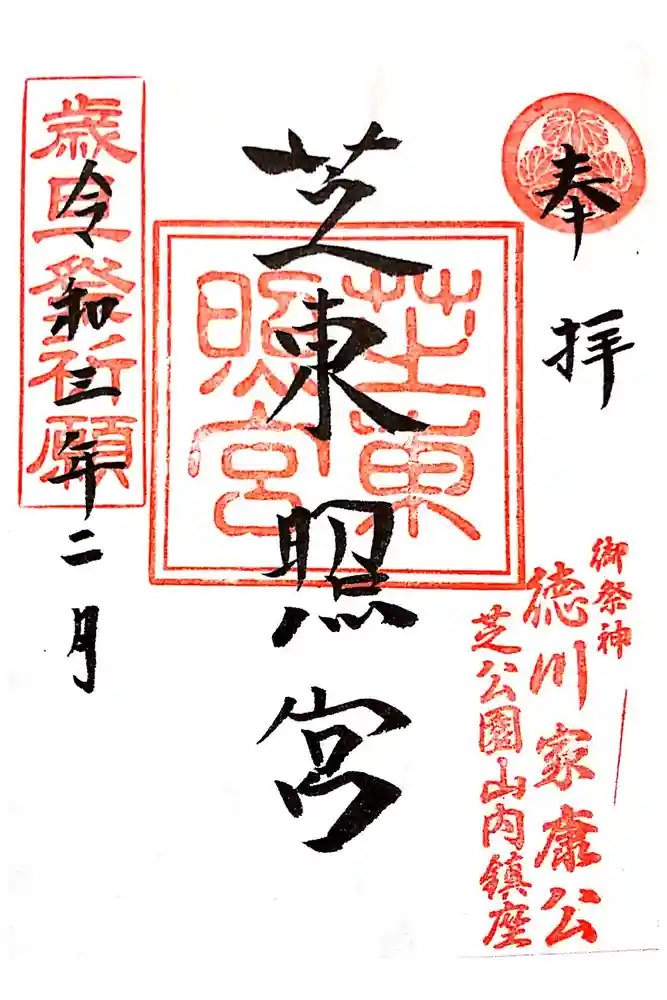 奉拝
御祭神
徳川家康公
芝公園山内鎮座
芝東照宮
芝東
照宮
歳旦祭祈願
令和三年二月